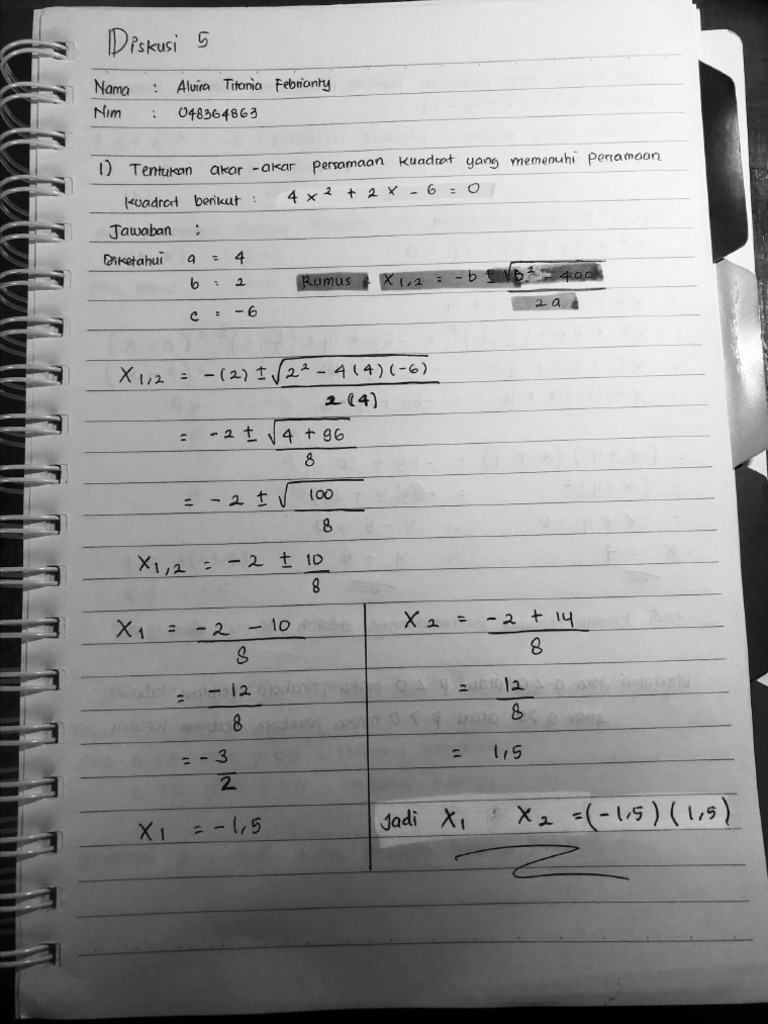 Diskusi 5
Nama : Alvira Titania Febrianty
Nim : 048364863
1) Tentukan akar-akar persamaan kuadrat yang memenuhi persamaan
kuadrat berikut : 4x² + 2x - 6 = 0
Jawaban :
Diketahui a = 4
b : 2
c = -6
Rumus : X1,2 = -b ± √b² - 4ac / 2a
X1,2 = -(2) ± √2² - 4(4)(-6) / 2(4)
= -2 ± √4 + 96 / 8
= -2 ± √100 / 8
X1,2 = -2 ± 10 / 8
X1 = -2 - 10 / 8
= -12 / 8
= -3 / 2
X1 = -1,5
X2 = -2 + 14 / 8
= 12 / 8
= 1,5
Jadi X1 : X2 = (-1,5) (1,5)